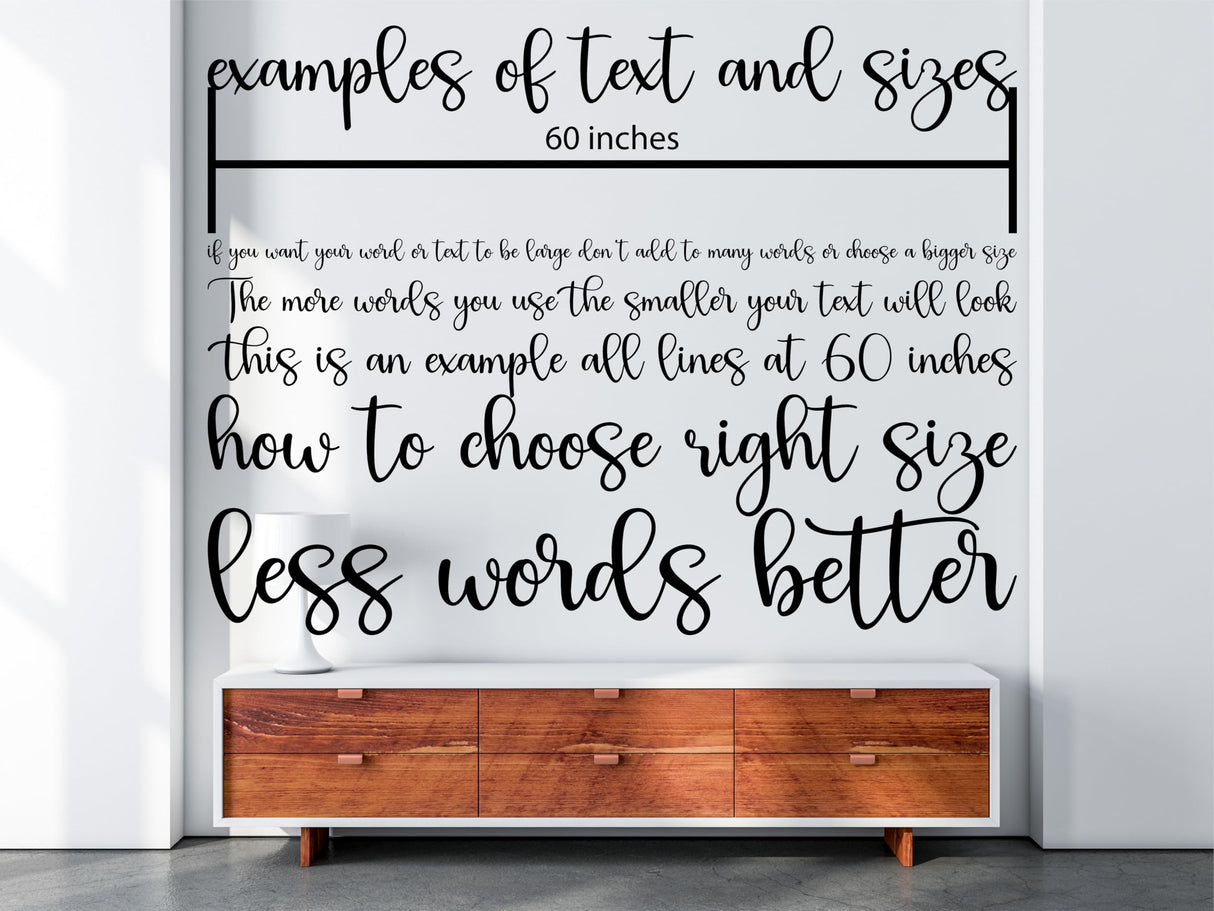 examples of text and sizes
60 inches
if you want your word or text to be large don't add to many words or choose a bigger size
The more words you use the smaller your text will look
this is an example all lines at 60 inches
how to choose right size
less words better